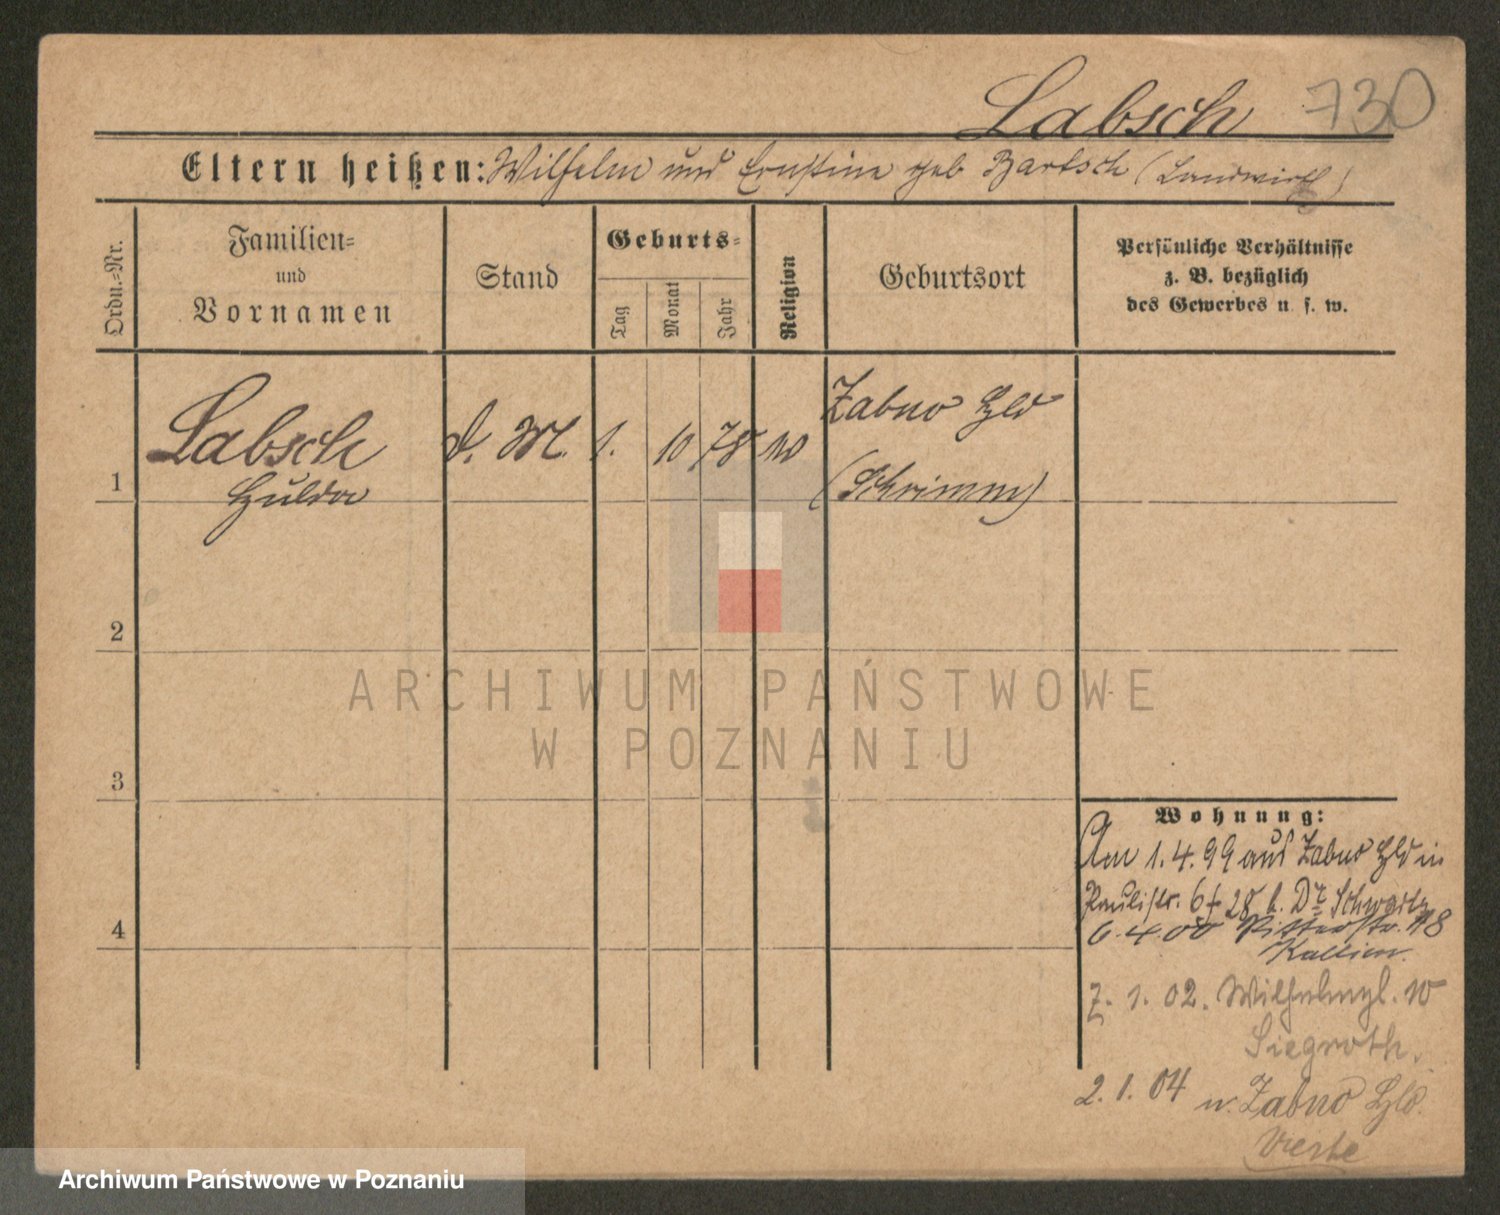 Labsch 730
Eltern heißen: Wilhelm und Ernstine geb Bartsch (Landwirth)
Ordn.-Nr.
Familien-
und
Vornamen
Stand
Geburts-
Tag
Monat
Jahr
Religion
Geburtsort
Persönliche Verhältnisse
z. B. bezüglich
des Gewerbes u. s. w.
1 Labsch d. M. 1. 10 78 Zabno Hld
Hulda (Schrimm)
2
3
4
ARCHIWUM PAŃSTWOWE
W POZNANIU
Wohnung:
Am 1.4.99 aus Zabno Hld in
Paulistr. 6 28 b. Dr Schwartz
6.4.00 Ritterstr. 18
7. 1. 02. Wilhelmpl. 10
Siegroth.
2. 1. 04 n. Zabno Hld.
Archiwum Państwowe w Poznaniu